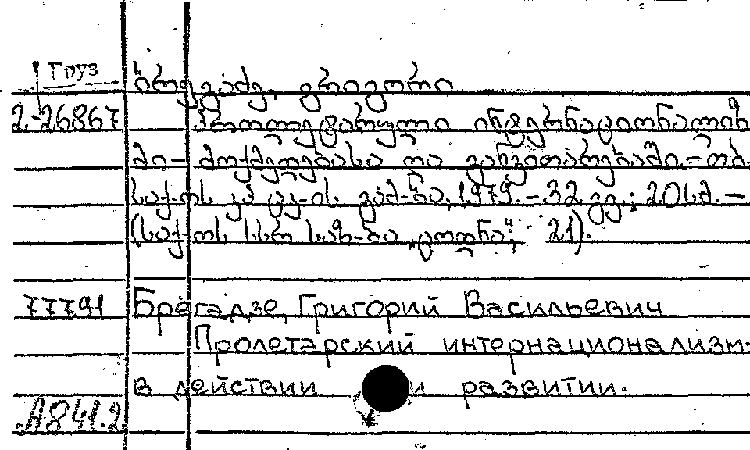 Груз
ბრეგაძე, გრიგორი
2-26867 პროლეტარული ინტერნაციონალიზ
მი – მოქმედებასა და განვითარებაში. – თბ.
საქ-ოს კპ ცკ-ის გამ-ბა, 1979. – 32 გვ.; 20 სმ. –
(საქ-ოს სსრ საზ-ბა „ცოდნა“; 21).
77791 Брегадзе, Григорий Васильевич
Пролетарский интернационализм
в действии и развитии.
А841.2